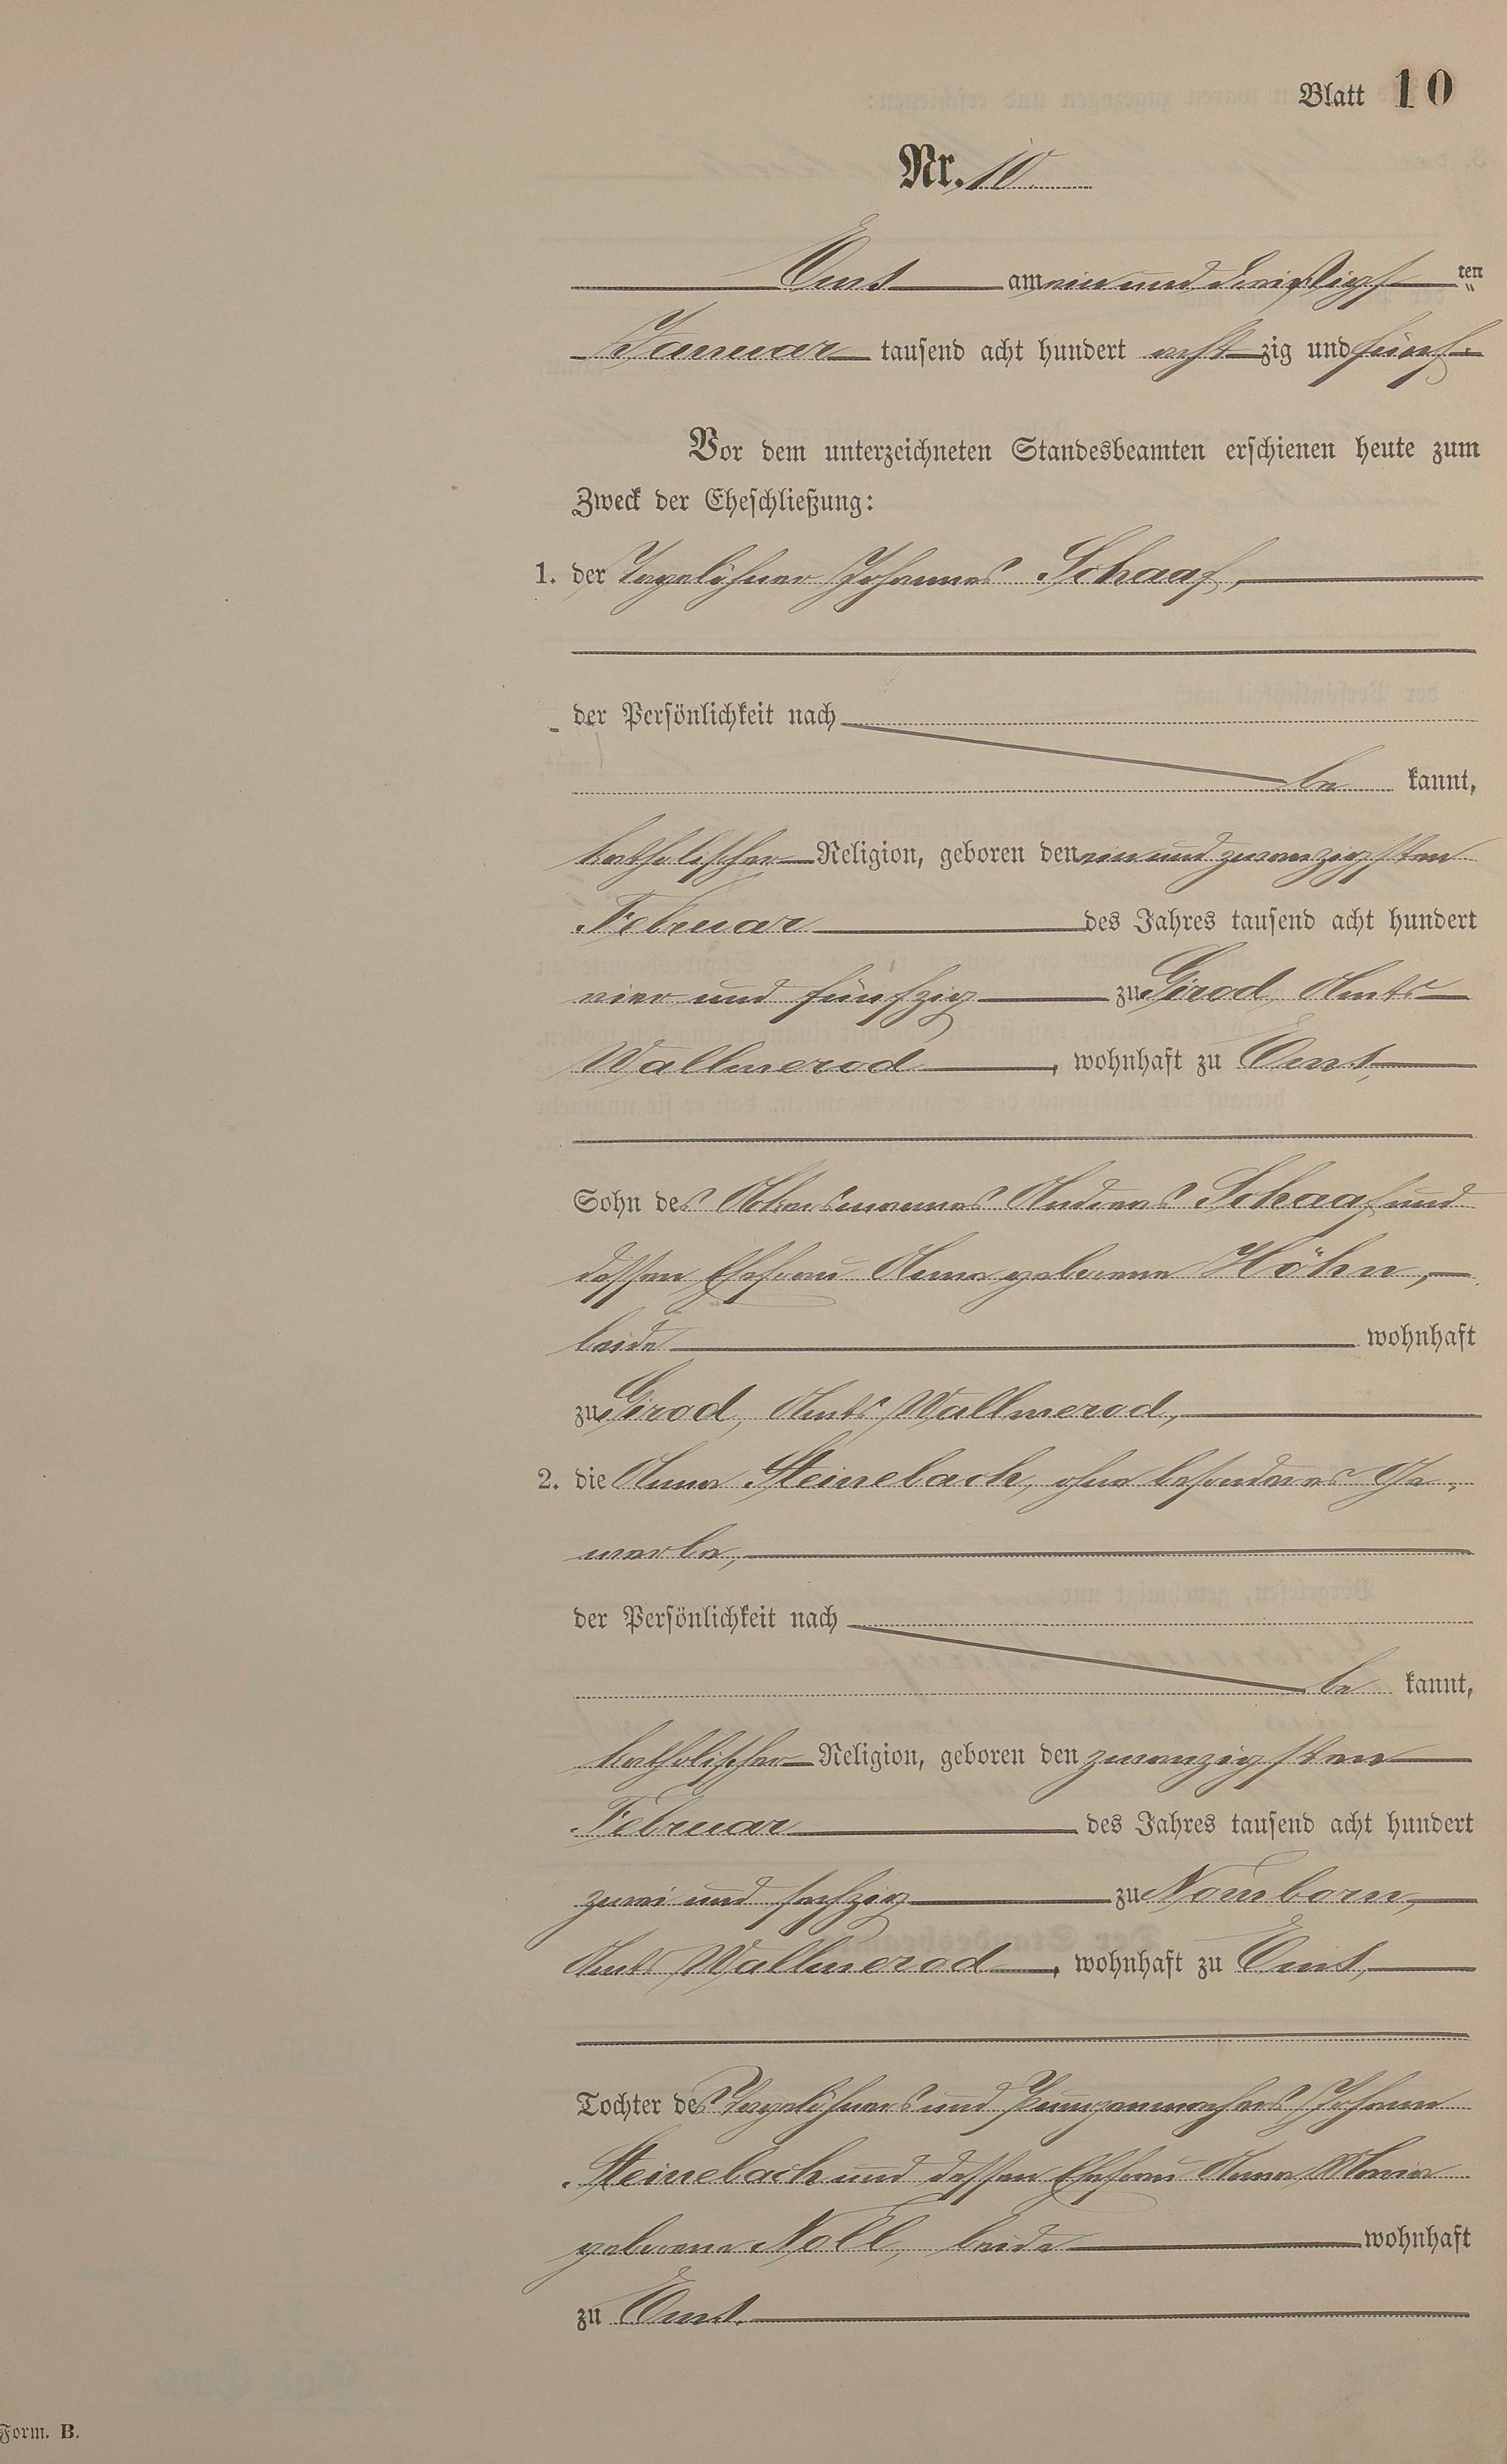 Blatt 10
Nr. 10
Ems am ein und dreißigsten
Januar tausend acht hundert achtzig und fünf.
Vor dem unterzeichneten Standesbeamten erschienen heute zum
Zweck der Eheschließung:
1. der Tagelöhner Johannes Schaaf,
der Persönlichkeit nach
be kannt,
katholischer Religion, geboren den ein und zwanzigsten
Februar des Jahres tausend acht hundert
vier und fünfzig zu Girod, Amts
Wallmerod, wohnhaft zu Ems,
Sohn des Ackersmannes Andreas Schaaf und
dessen Ehefrau Anna geborene Höhn,
beide wohnhaft
zu Girod, Amts Wallmerod,
2. die Anna Steinebach, ohne besonderes Ge-
werbe,
der Persönlichkeit nach
be kannt,
katholischer Religion, geboren den zwanzigsten
Februar des Jahres tausend acht hundert
zwei und sechzig zu Nomborn,
Amts Wallmerod, wohnhaft zu Ems,
Tochter des Tagelöhners und Pumpenmachers Johann
Steinebach und dessen Ehefrau Anna Maria
geborene Noll, beide wohnhaft
zu Ems.
Form. B.